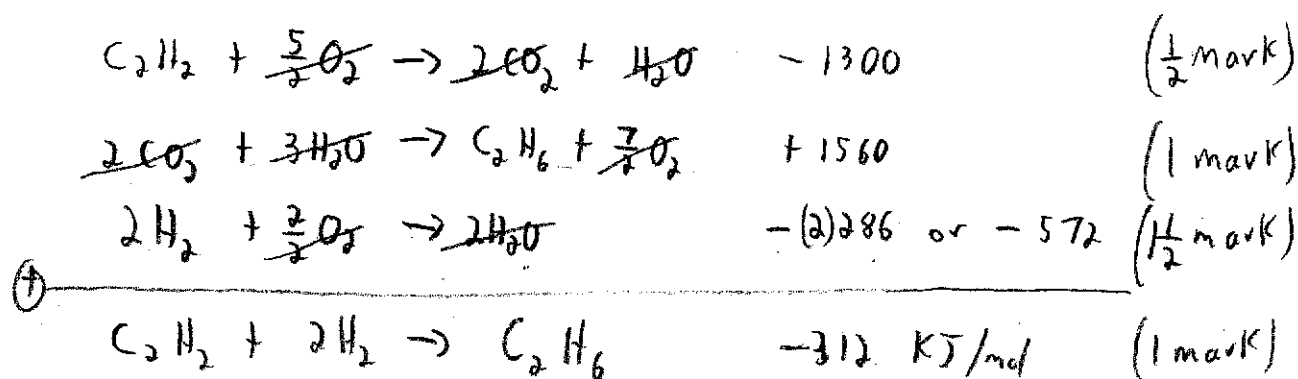 C₂H₂ + 5/2 O₂ → 2CO₂ + H₂O - 1300 (1/2 mark)
2CO₂ + 3H₂O → C₂H₆ + 7/2 O₂ + 1560 (1 mark)
2H₂ + 2/2 O₂ → 2H₂O -(2)286 or - 572 (1 1/2 mark)
+
C₂H₂ + 2H₂ → C₂H₆ -312 KJ/mol (1 mark)